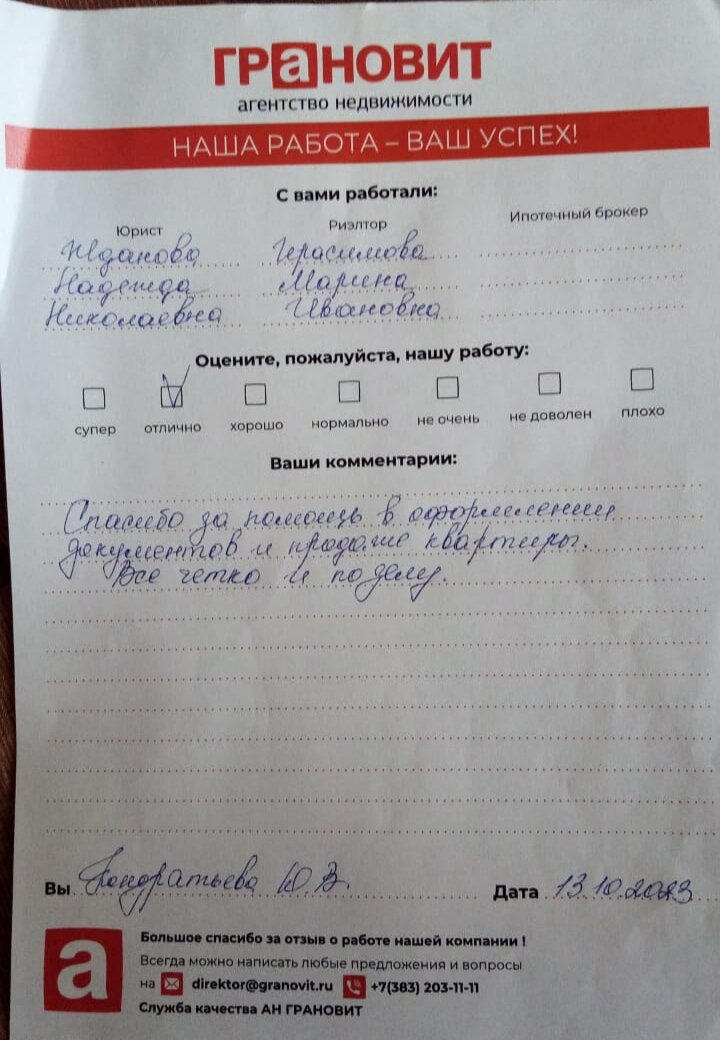 ГРаНОВИТ
агентство недвижимости
НАША РАБОТА – ВАШ УСПЕХ!
С вами работали:
Юрист Риэлтор Ипотечный брокер
Жданова Герасимова
Надежда Марина
Николаевна Ивановна
Оцените, пожалуйста, нашу работу:
супер отлично хорошо нормально не очень не доволен плохо
Ваши комментарии:
Спасибо за помощь в оформлении
документов и продаже квартиры.
Все четко и по делу.
Вы Кондратьева Ю.В. Дата 13.10.2023
а
Большое спасибо за отзыв о работе нашей компании !
Всегда можно написать любые предложения и вопросы
на direktor@granovit.ru +7(383) 203-11-11
Служба качества АН ГРАНОВИТ